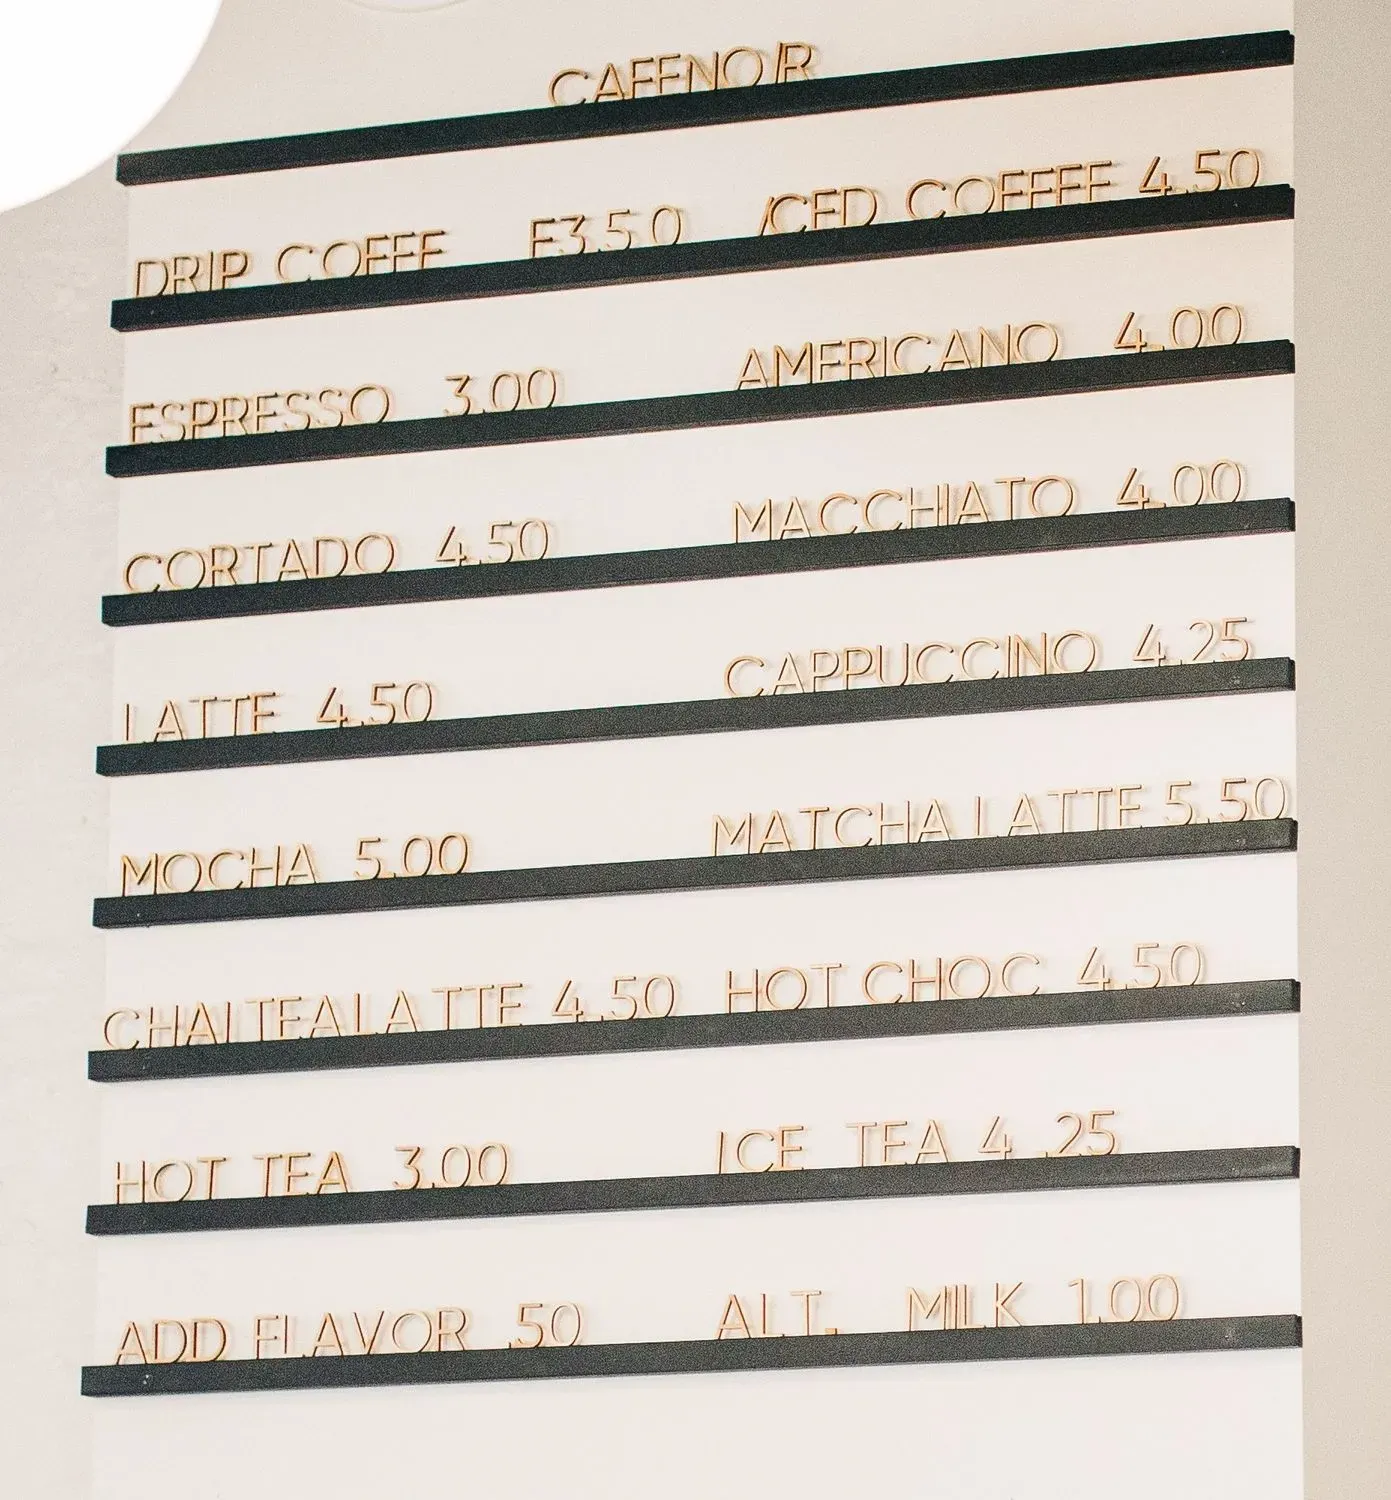 CAFE NOIR
DRIP COFFE E3.50 ICED COFFEE 4.50
ESPRESSO 3.00 AMERICANO 4.00
CORTADO 4.50 MACCHIATO 4.00
LATTE 4.50 CAPPUCCINO 4.25
MOCHA 5.00 MATCHA LATTE 5.50
CHAI TEA LATTE 4.50 HOT CHOC 4.50
HOT TEA 3.00 ICE TEA 4.25
ADD FLAVOR .50 ALT. MILK 1.00